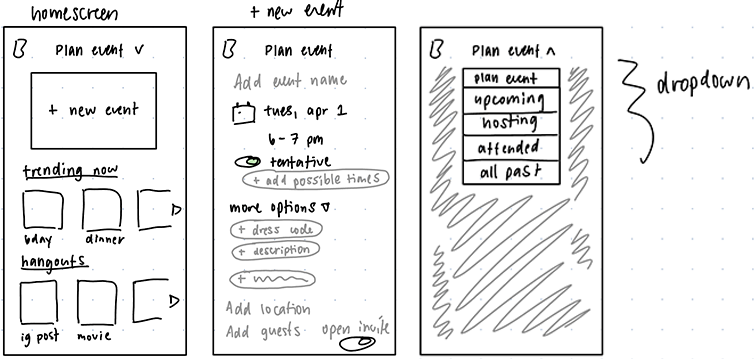 homescreen
B Plan event v
+ new event
trending now
bday dinner
hangouts
ig post movie
+ new event
B Plan event
Add event name
tues, apr 1
6-7 pm
tentative
+ add possible times
more options
+ dress code
+ description
+
Add location
Add guests open invite
B Plan event ^
plan event
upcoming
hosting
attended
all past
dropdown